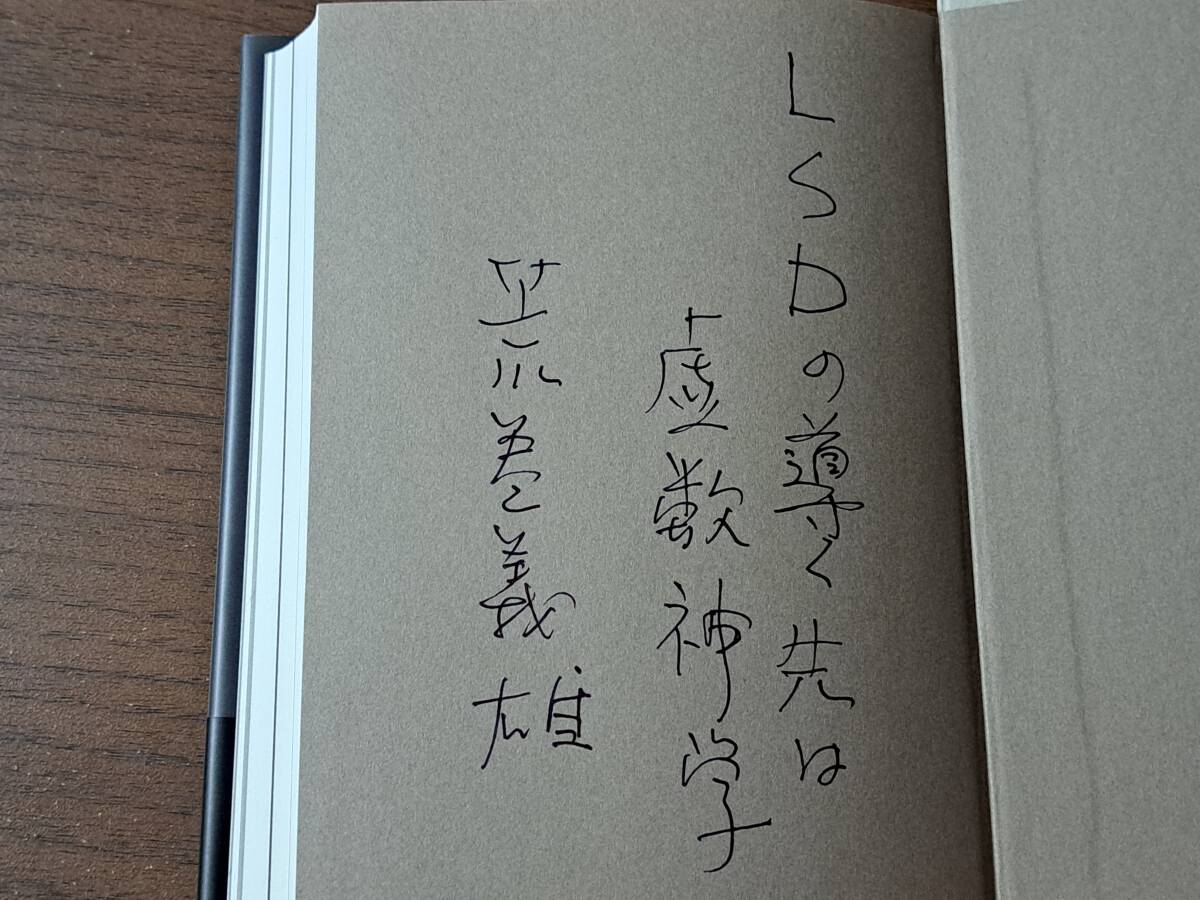 LSDの導く先は
虚数神学
荒巻義雄